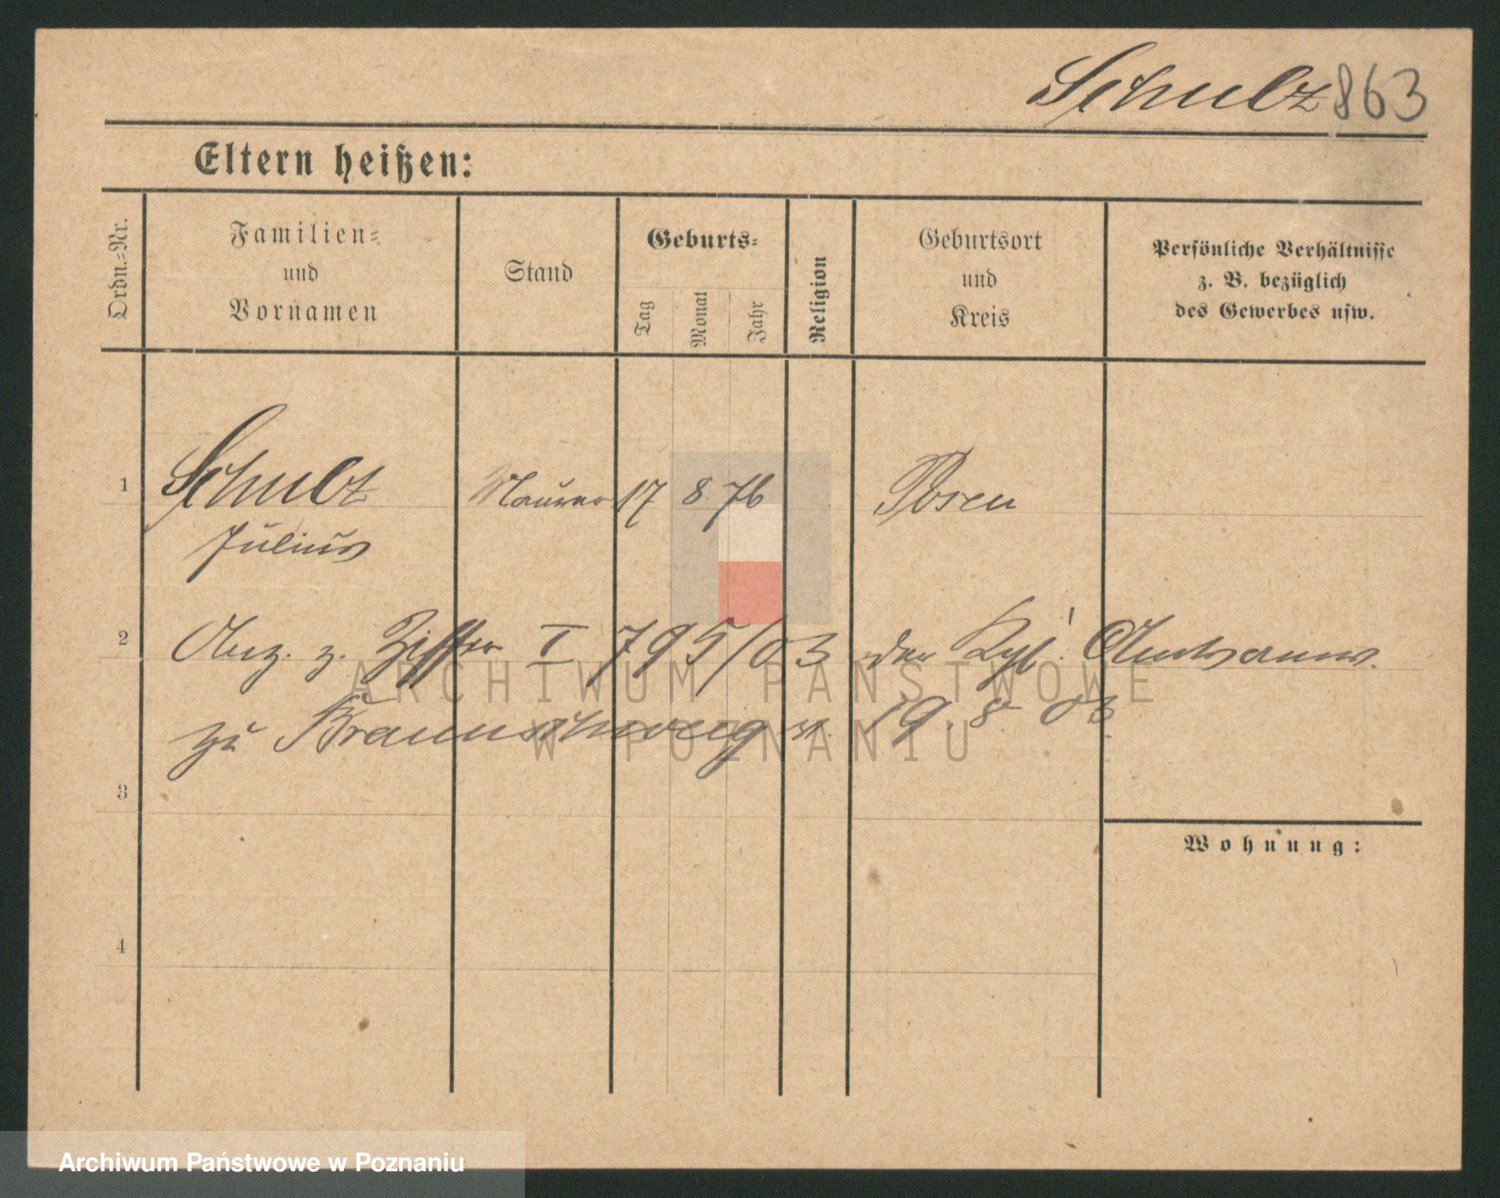 Schulz 863
Eltern heißen:
Ordn.-Nr.
Familien-
und
Vornamen
Stand
Geburts-
Tag
Monat
Jahr
Religion
Geburtsort
und
Kreis
Persönliche Verhältnisse
z. B. bezüglich
des Gewerbes usw.
1 Schulz Maurer 17 8. 76 Posen
Julius
2 Anz. z. Ziffer I 795/03 der Kgl. Amtsanw.
zu Braunschweig v. 19. 8. 03
ARCHIWUM PAŃSTWOWE
W POZNANIU
3
Wohnung:
4
Archiwum Państwowe w Poznaniu